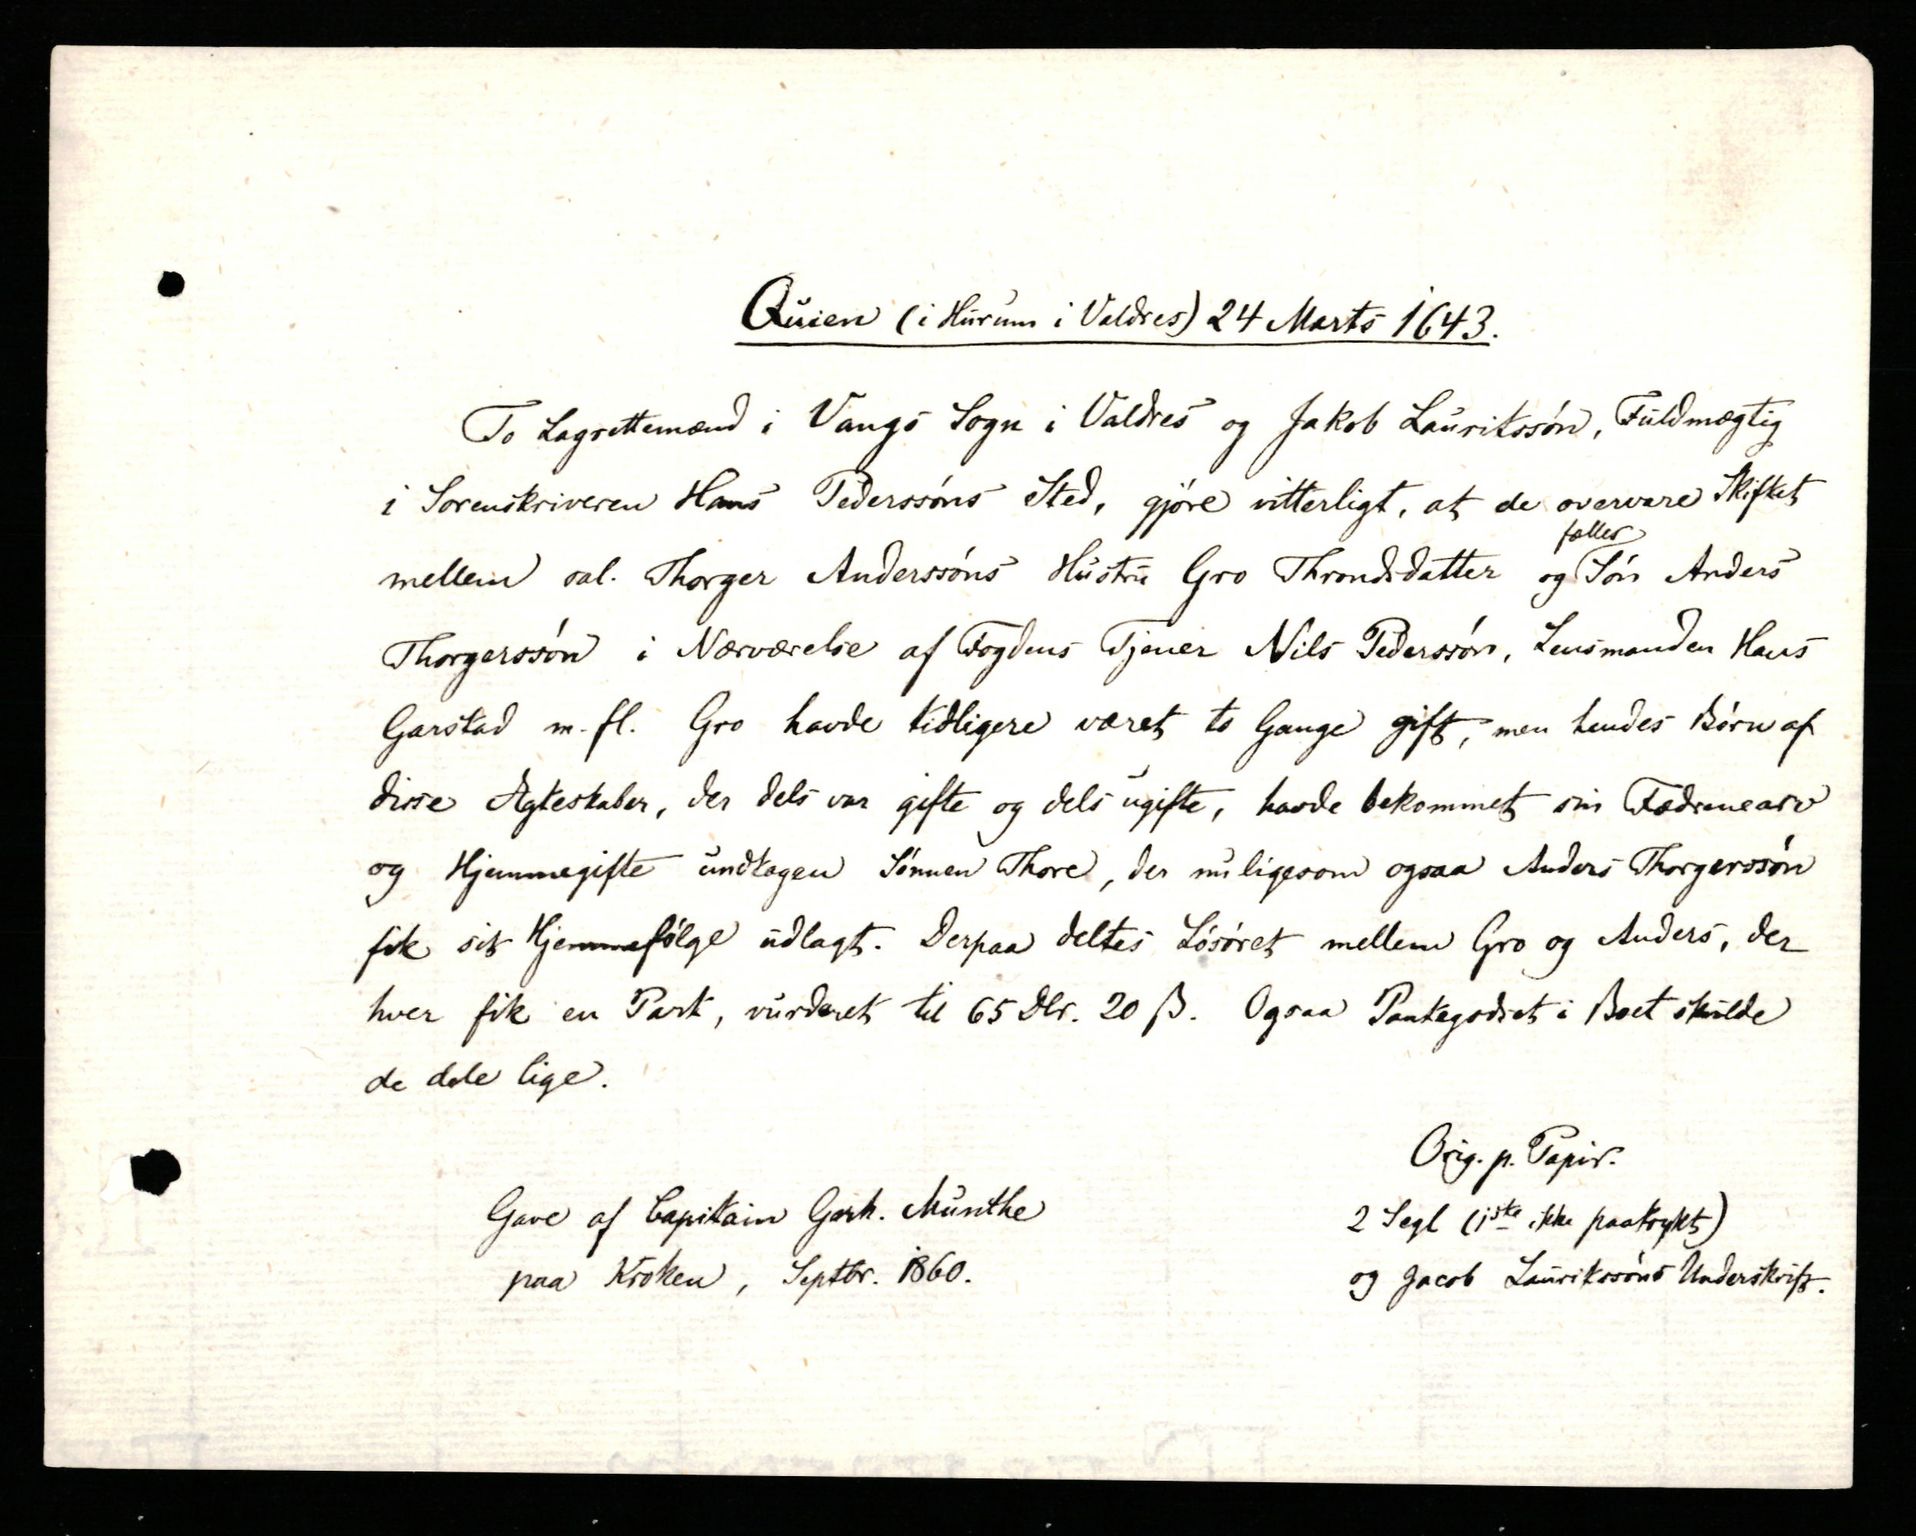 Quien (i Hurum i Valdres) 24 Marts 1643.
To Lagrettemænd i Vangs Sogn i Valdres og Jakob Lauritssón, Fuldmægtig
i Sorenskriveren Hans Pederssóns Sted, gjóre vitterligt, at de overvare Skiftet
mellem sal. Thorger Anderssóns Hustru Gro Throndsdatter og fælles Són Anders
Thorgerssón i Nærværelse af Fogdens Tjener Nils Pederssón, Lensmanden Hans
Garstad m. fl. Gro havde tidligere været to Gange gift, men hendes Börn af
disse Ægteskaber, der dels var gifte og dels ugifte, havde bekommet sin Fædrenearv
og Hjemmegifte undtagen Sónnen Thore, der nu ligesom ogsaa Anders Thorgerssón
fik sit Hjemmefólge udlagt. Derpaa deltes Lósóret mellem Gro og Anders, der
hver fik en Part, vurderet til 65 Dlr. 20 ß. Ogsaa Pantegodset i Boet skulde
de dele lige.
Orig. p. Papir.
Gave af Capitain Gerh. Munthe
2 Segl (1ste ikke paatrykt)
paa Kroken, Septbr. 1860.
og Jacob Lauritssóns Underskrift.